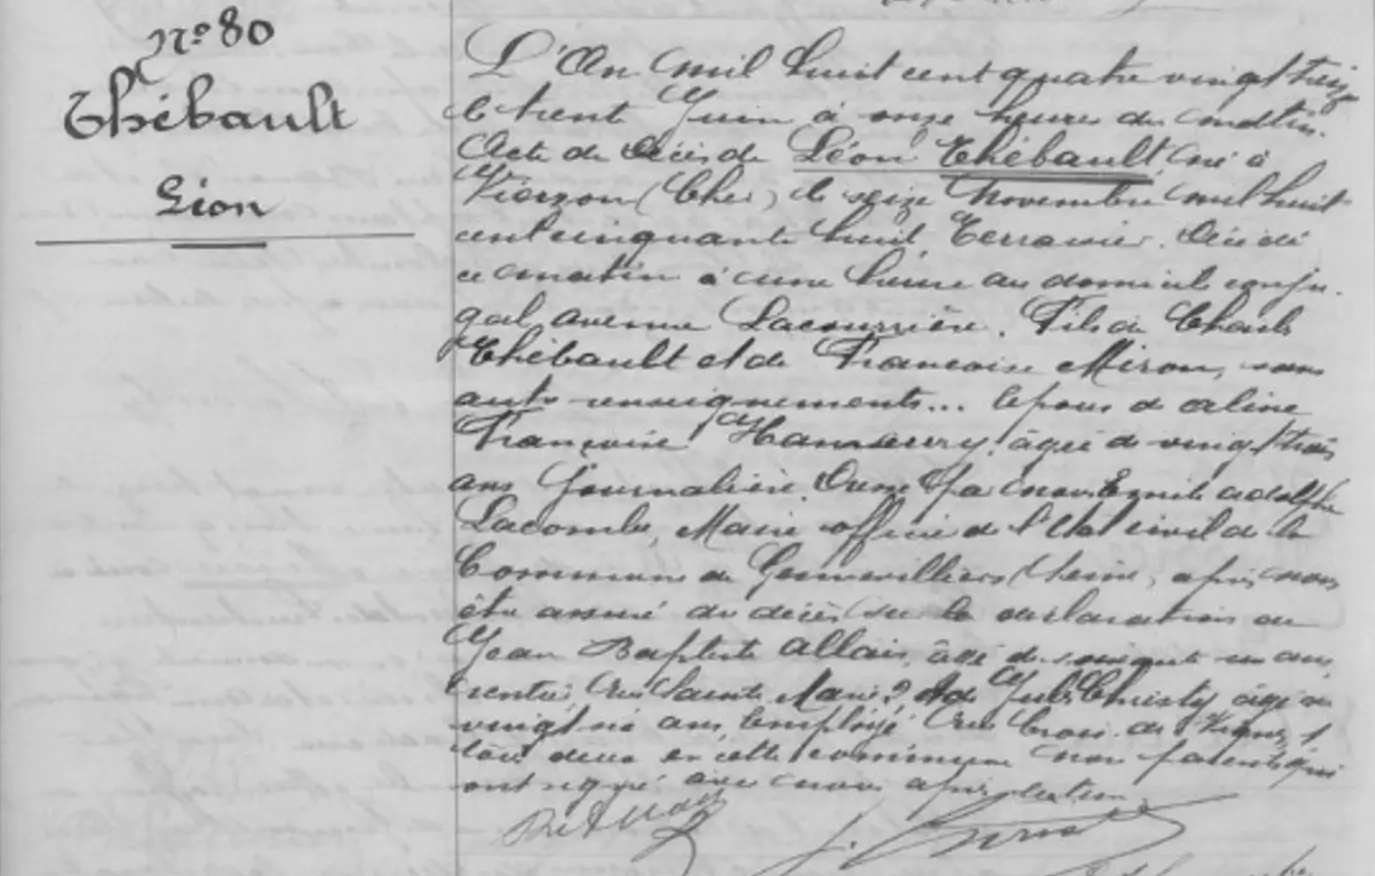 N° 80
Thébault
Léon
L'An mil huit cent quatre vingt treize
le trente Juin à onze heures du matin.
Acte de décès de Léon Thébault, né à
Vierzon (Cher) le seize Novembre mil huit
cent cinquante huit, Terrassier. Décédé
ce matin à une heure au domicile conju-
gal avenue Lacourrière. Fils de Charles
Thébault et de Françoise Miron, sans
autre renseignements... Epoux de Aline
Françoise âgée de vingt trois
ans Journalière. Dressé par nous Emile Adolphe
Lacombe, Maire officier de l'Etat civil de la
Commune de Gennevilliers (Seine, après nous
être assuré du décès sur la déclaration de
Jean Baptiste Allais, âgé de un ans,
rentier, rue Sainte Marie 2, et de Jules Christy âgé de
vingt ans, Employé rue Croix des Vignes, 1
tous deux en cette commune non parents qui
ont signé avec nous après lecture.